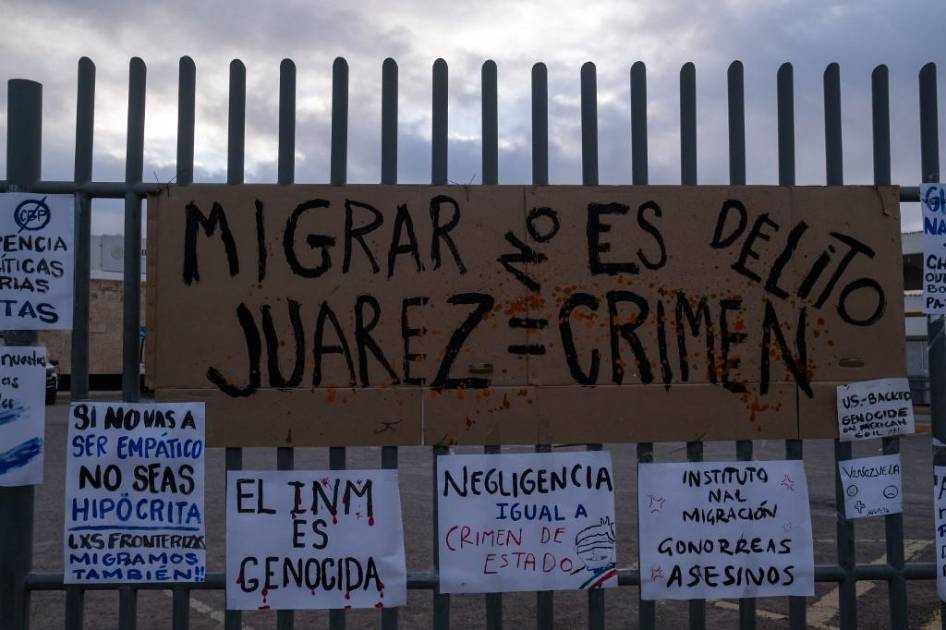 MIGRAR NO ES DELITO
JUAREZ = CRIMEN
CBP
PENCIA
LÍTICAS
RIAS
TAS
SI NO VAS A
SER EMPÁTICO
NO SEAS
HIPÓCRITA
LXS FRONTERIZXS
MIGRAMOS
TAMBIÉN!!
EL INM
ES
GENOCIDA
NEGLIGENCIA
IGUAL A
CRIMEN DE
ESTADO
INSTITUTO
NAL
MIGRACIÓN
GONORREAS
ASESINOS
US-BACKED
GENOCIDE
ON MEXICAN
SOIL !!!
VENEZUELA